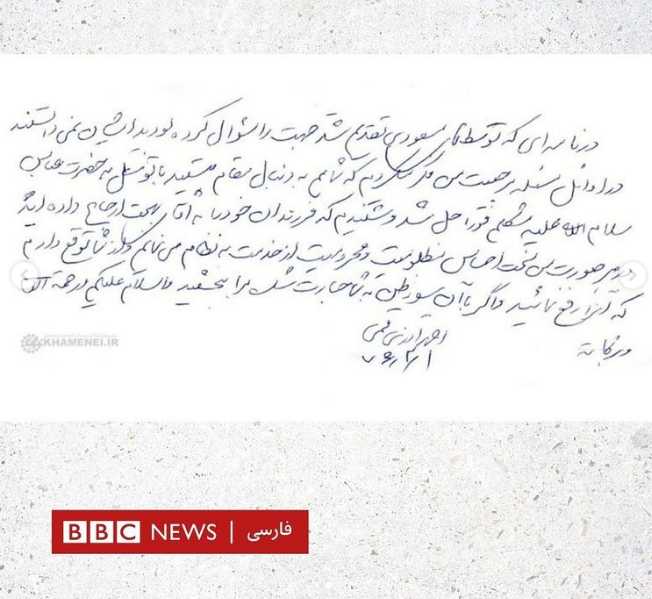 در نامه‌ای که توسط آقای مسعودی تقدیم شد جهت را سؤال کرده بودید ایشان نمی دانستند
در اوائل مسئله مرجعیت من فکر می کردم که شما هم به دنبال مقام هستید با توسل به حضرت عباس
سلام الله علیه مشکلم فوراً حل شد و شنیدیم که فرزندان خود را به آقای ارجاع داده اید
در هر صورت من تحت احساس مظلومیت و محرومیت از خدمت به نظام می نمایم و از شما توقع دارم
که آنرا رفع نمائید و اگر با آن سوء ظن به شما جسارت شده مرا ببخشید والسلام علیکم و رحمة الله
و برکاته
احمد آذری قمی
۷۶/۲/۱
KHAMENEI.IR
BBC NEWS | فارسی